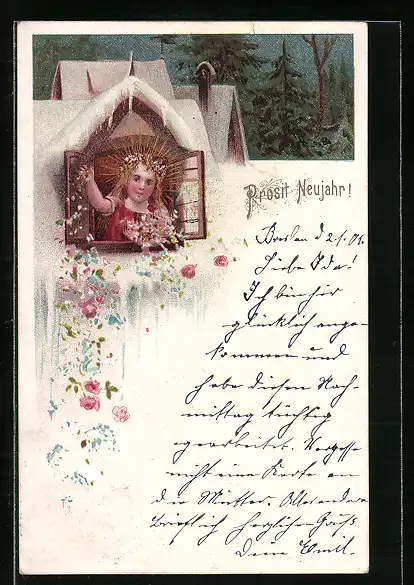 Prosit Neujahr!
d 2/1. 01.
Liebe Ida!
Ich bin hier
glücklich ange-
kommen und
habe diesen Nach-
mittag tüchtig
gearbeitet. Vergesse
nicht eine Karte an
die Mutter.
Brief ich herzlichen Gruß
Dein Emil.